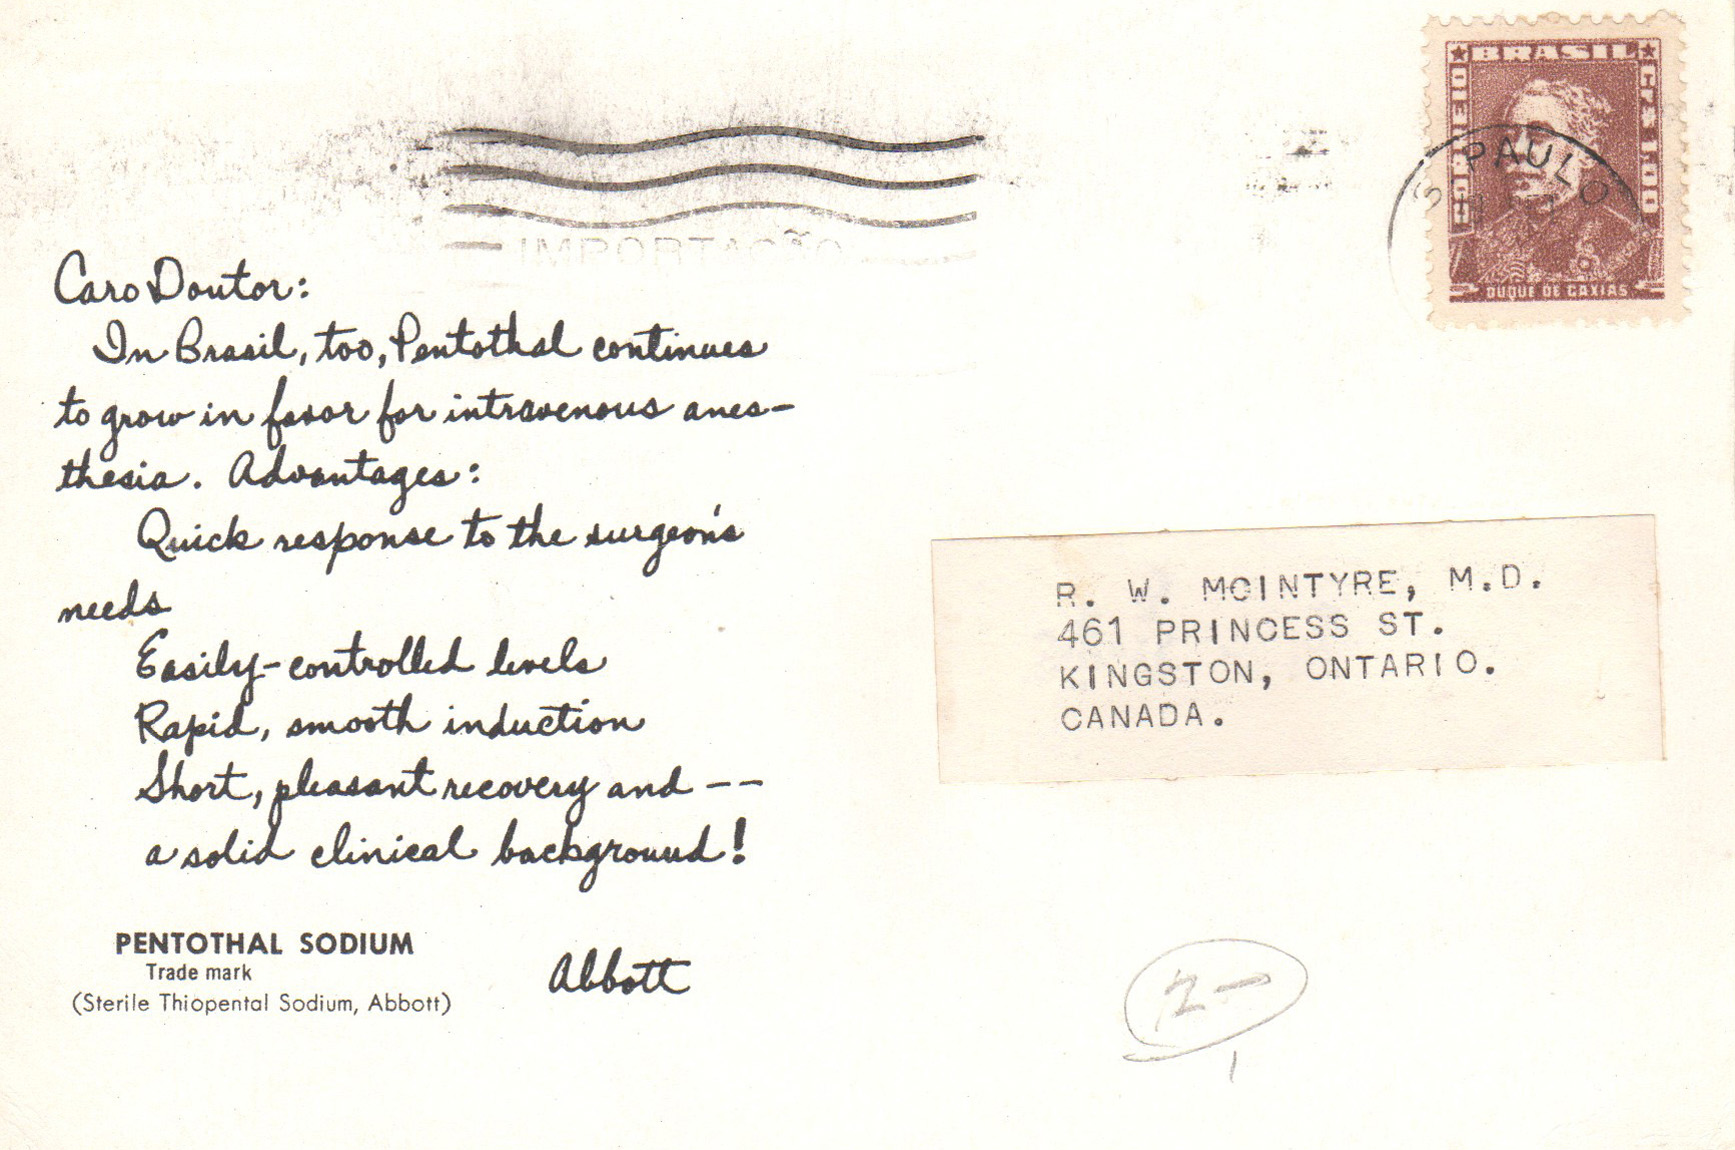 BRASIL
CORREIO
CR$ 1,00
S. PAULO
DUQUE DE CAXIAS
IMPORTAÇÃO
Caro Doutor:
In Brasil, too, Pentothal continues
to grow in favor for intravenous anes-
thesia. Advantages:
Quick response to the surgeon's
needs
Easily-controlled levels
Rapid, smooth induction
Short, pleasant recovery and --
a solid clinical background!
PENTOTHAL SODIUM
Trade mark
(Sterile Thiopental Sodium, Abbott)
Abbott
R. W. MCINTYRE, M.D.
461 PRINCESS ST.
KINGSTON, ONTARIO.
CANADA.
2-